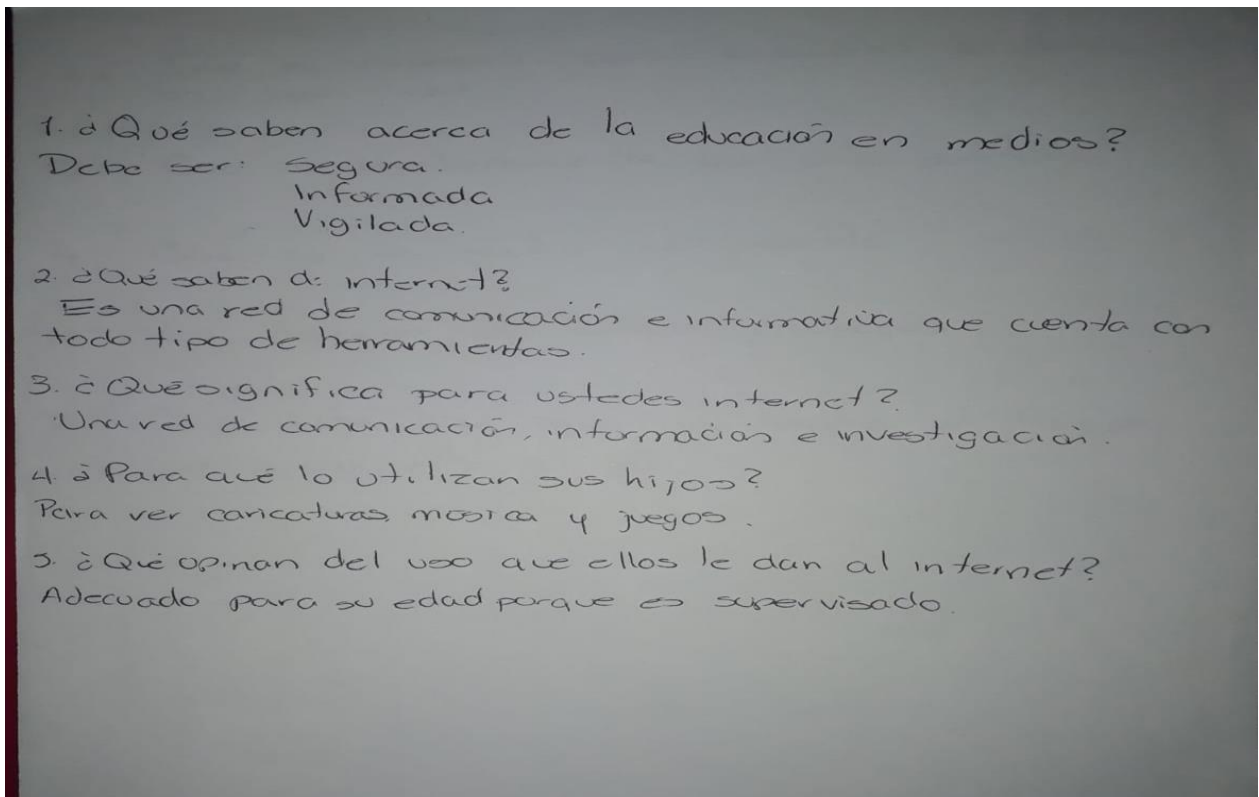 1. ¿Qué saben acerca de la educación en medios?
Debe ser: Segura.
Informada
Vigilada.
2. ¿Qué saben de internet?
Es una red de comunicación e informativa que cuenta con
todo tipo de herramientas.
3. ¿Qué significa para ustedes internet?
Una red de comunicación, información e investigación.
4. ¿Para qué lo utilizan sus hijos?
Para ver caricaturas, música y juegos.
5. ¿Qué opinan del uso que ellos le dan al internet?
Adecuado para su edad porque es supervisado.